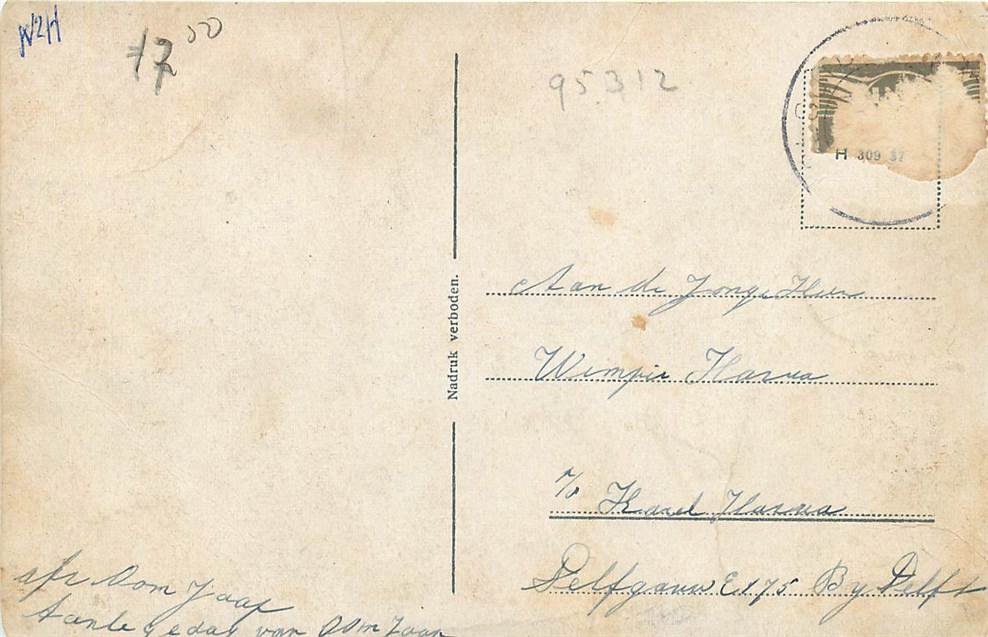 N2H
17 00
95312
H 309 37
Nadruk verboden.
Aan de Jonge Heer
Wimpie
Karel
Delfgauw E175 By Delft
afz Oom Jaap
Tante van Oom Jaap